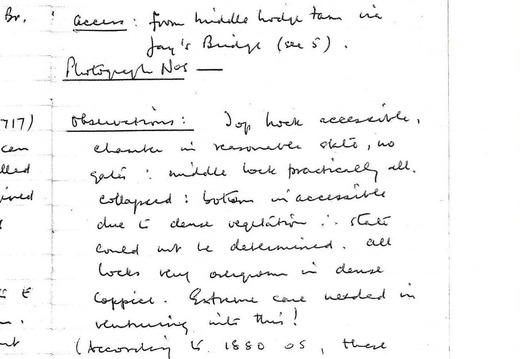 Br.
access: from middle lodge farm via
Jay's Bridge (see 5).
Photograph Nos —
717)
Observations: Top lock accessible,
chamber in reasonable state, no
gates: middle lock practically all
collapsed: bottom inaccessible
due to dense vegetation ∴ state
could not be determined. all
locks very overgrown in dense
coppice. Extreme care needed in
venturing into this!
(According to 1880 OS, these